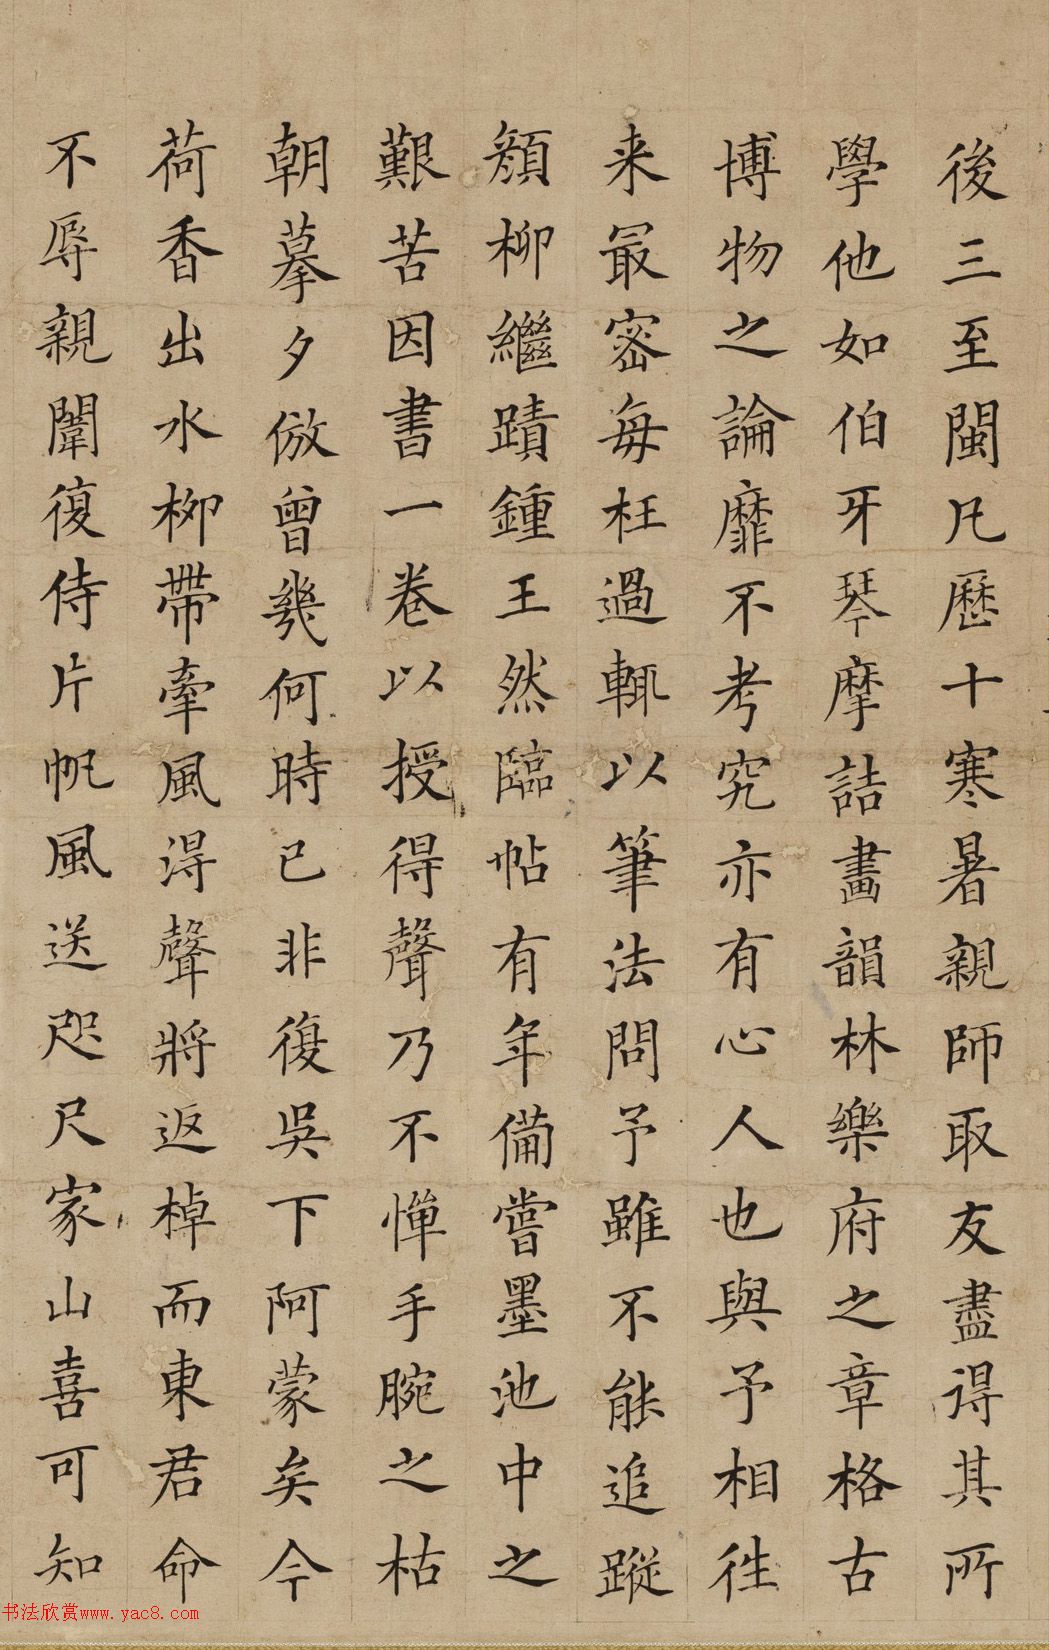 後三至閩凡歷十寒暑親師取友盡得其所
學他如伯牙琴摩詰畫韻林樂府之章格古
博物之論靡不考究亦有心人也與予相往
来最密每枉過輒以筆法問予雖不能追蹤
顏柳繼蹟鍾王然臨帖有年備嘗墨池中之
艱苦因書一卷以授得聲乃不憚手腕之枯
朝摹夕倣曾幾何時已非復吳下阿蒙矣今
荷香出水柳帶牽風得聲將返棹而東君命
不辱親闈復侍片帆風送咫尺家山喜可知
书法欣赏www.yac8.com